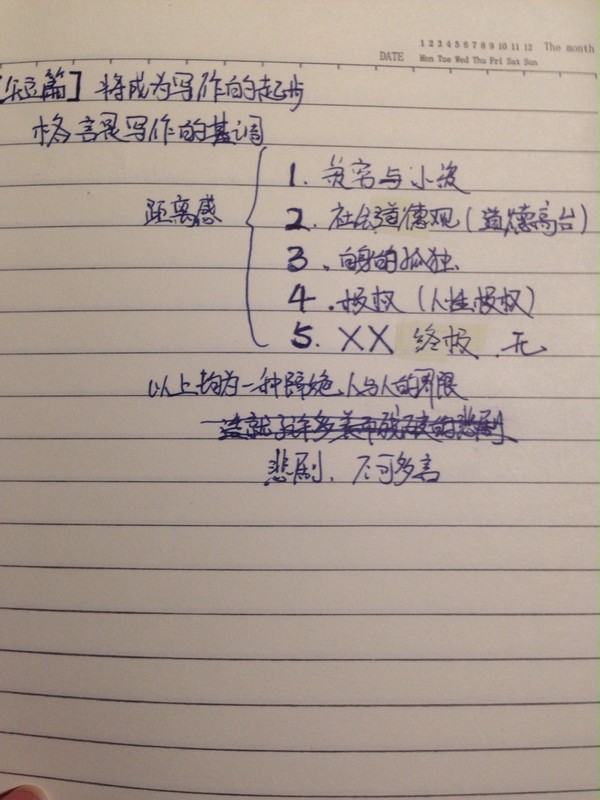 1 2 3 4 5 6 7 8 9 10 11 12 The month
DATE Mon Tue Wed Thu Fri Sat Sun
篇】将成为写作的起步
格言是写作的基调
距离感
1. 贫穷与小
2. 社会道德观(道德高台)
3. 自身的孤独
4. 极权(人性极权)
5. XX 终极. 无
以上均为一种隔绝人与人的界限
悲剧、不可多言